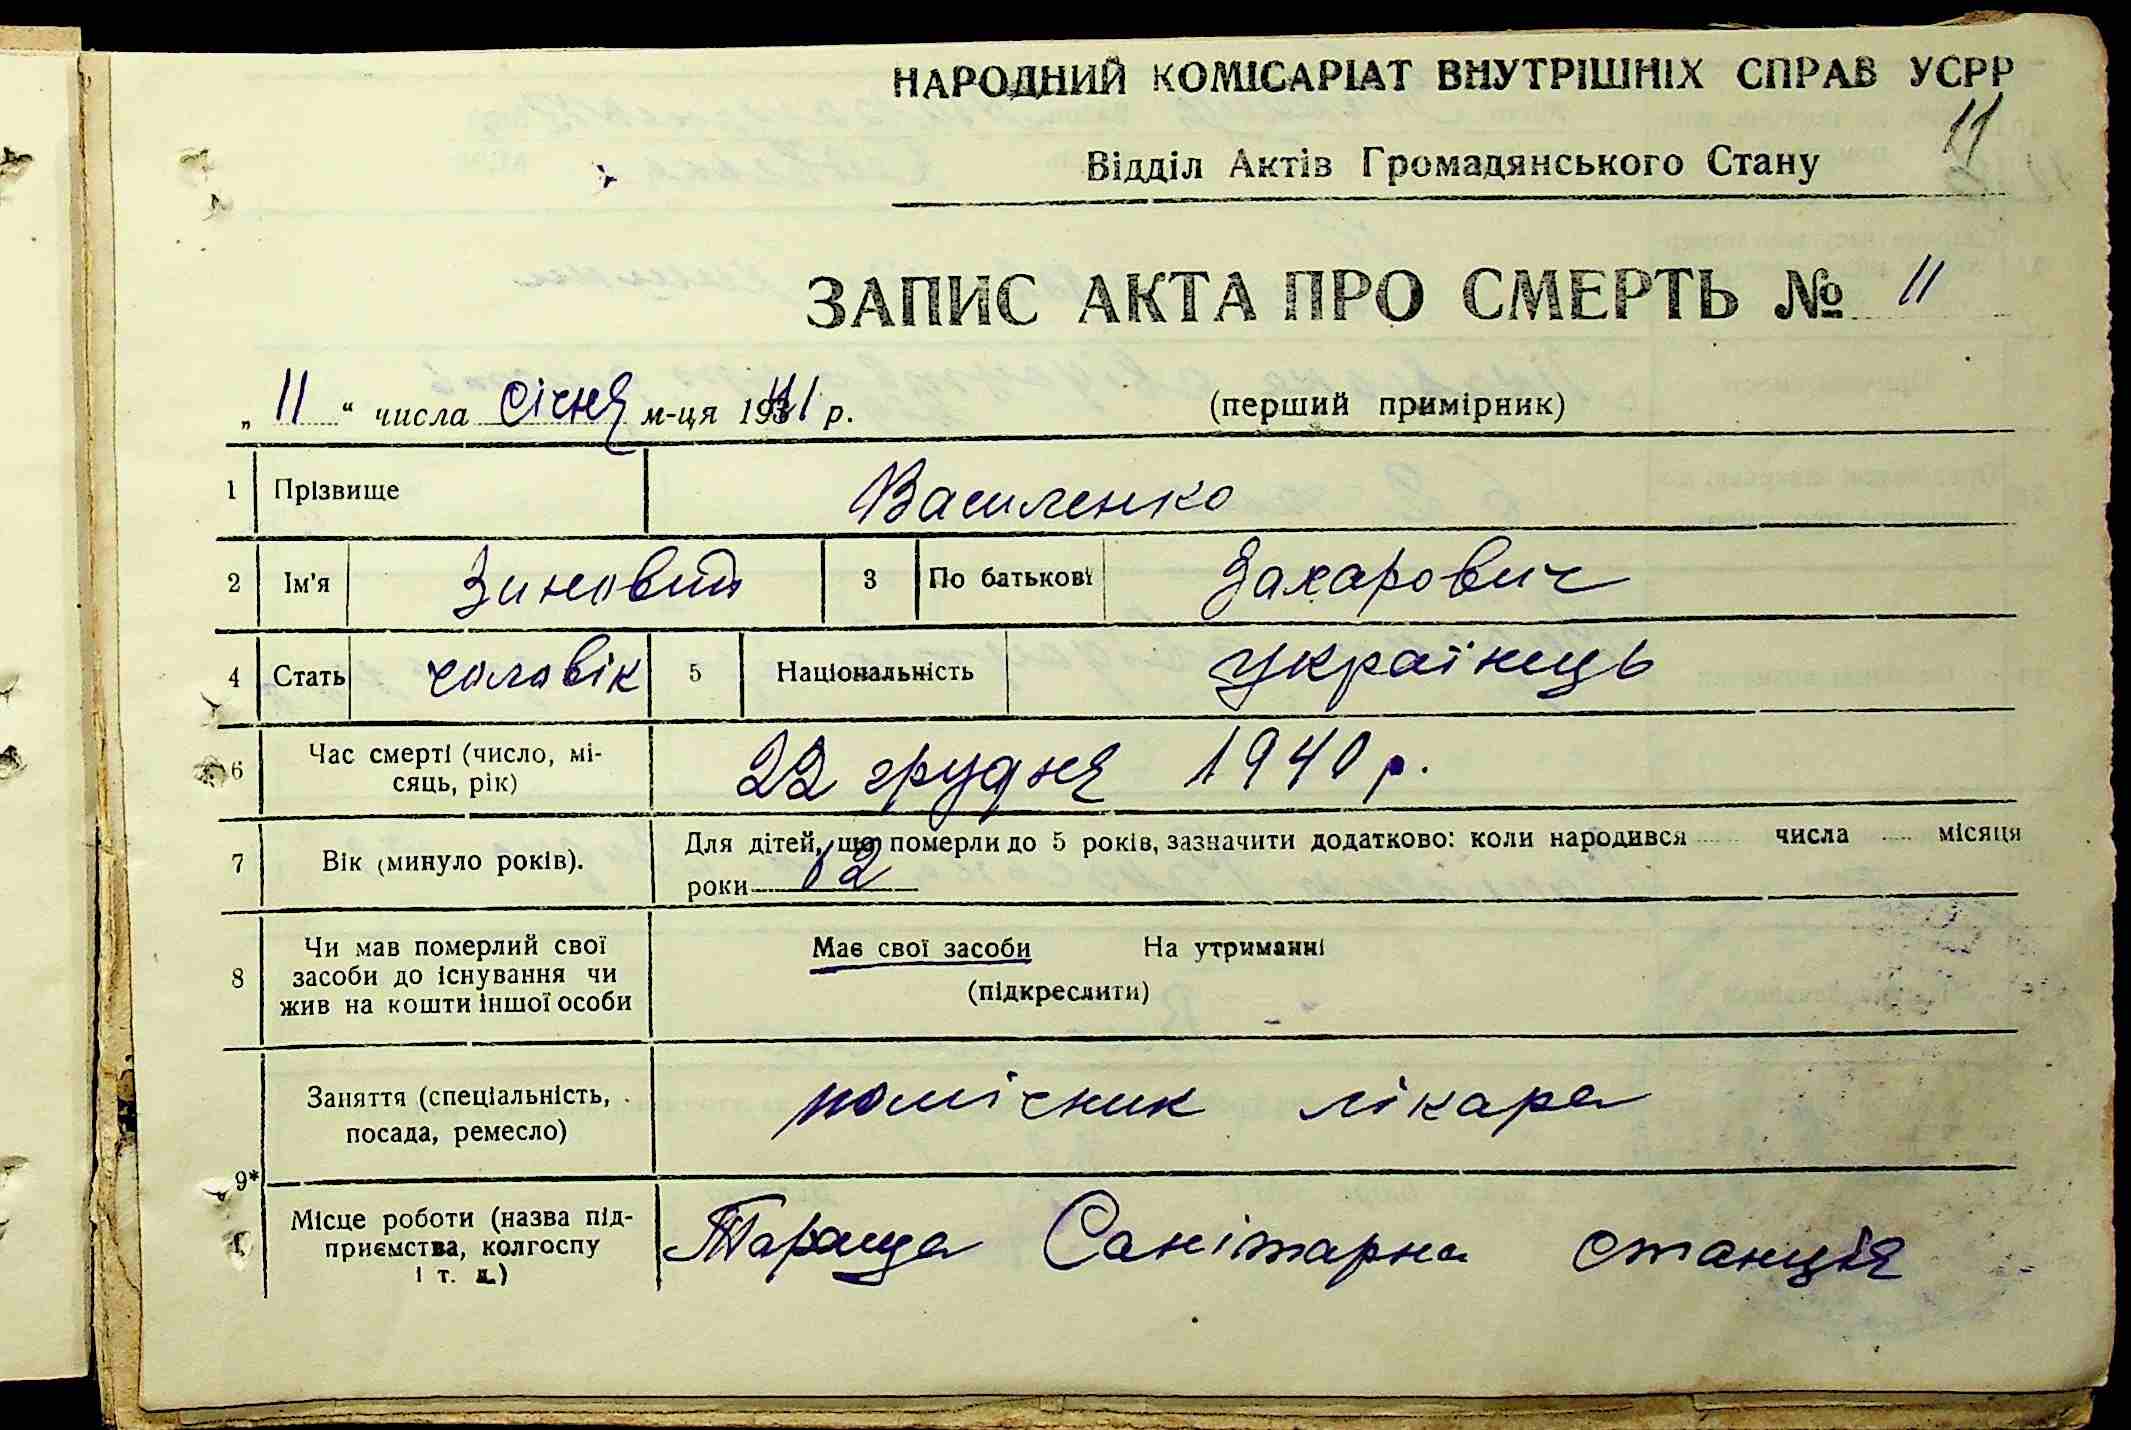 НАРОДНИЙ КОМІСАРІАТ ВНУТРІШНІХ СПРАВ УСРР
11
Відділ Актів Громадянського Стану
ЗАПИС АКТА ПРО СМЕРТЬ № 11
„ 11 “ числа січня м-ця 1941 р. (перший примірник)
1 Прізвище Василенко
2 Ім'я Зиновий 3 По батькові Захарович
4 Стать чоловік 5 Національність українець
6 Час смерті (число, мі-
сяць, рік) 22 грудня 1940 р.
7 Вік (минуло років). Для дітей, що померли до 5 років, зазначити додатково: коли народився числа місяця
роки 62
8 Чи мав померлий свої
засоби до існування чи
жив на кошти іншої особи
Має свої засоби На утриманні
(підкреслити)
9* Заняття (спеціальність,
посада, ремесло) помічник лікаря
Місце роботи (назва під-
приємства, колгоспу
і т. д.) Тараща Санітарна станція